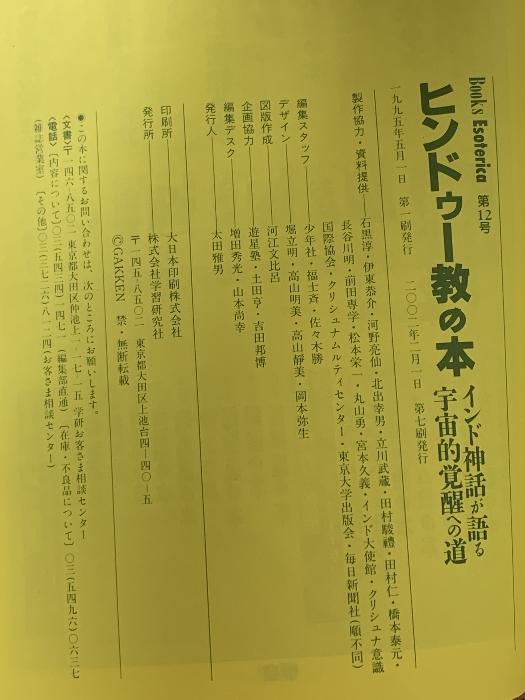 Books Esoterica 第12号
ヒンドゥー教の本
インド神話が語る
宇宙的覚醒への道
一九九五年五月一日 第一刷発行 二〇〇二年二月一日 第七刷発行
製作協力・資料提供
石黒淳・伊東恭介・河野亮仙・北出幸男・立川武蔵・田村駿禮・田村仁・橋本泰元・
長谷川明・前田専学・松本栄一・丸山勇・宮本久義・インド大使館・クリシュナ意識
国際協会・クリシュナムルティセンター・東京大学出版会・毎日新聞社(順不同)
編集スタッフ 少年社・福士斉・佐々木勝
堀立明・高山明美・高山靜美・岡本弥生
デザイン 河江文比呂
図版作成 遊星塾・土田亨・吉田邦博
企画協力
編集デスク 増田秀光・山本尚幸
発行人 太田雅男
印刷所 大日本印刷株式会社
発行所 株式会社学習研究社
〒一四五-八五〇二 東京都大田区上池台四-四〇-五
©GAKKEN 禁・無断転載
●この本に関するお問い合わせは、次のところにお願いします。
〈文書〉〒一四六-八五〇二 東京都大田区仲池上一-一七-一五 学研お客さま相談センター
〈電話〉[内容について]〇三(五四三四)一四七一(編集部直通) [在庫・不良品について]〇三(五四九六)〇六三七
(雑誌営業室) [その他]〇三(三七二六)八一二四(お客さま相談センター)